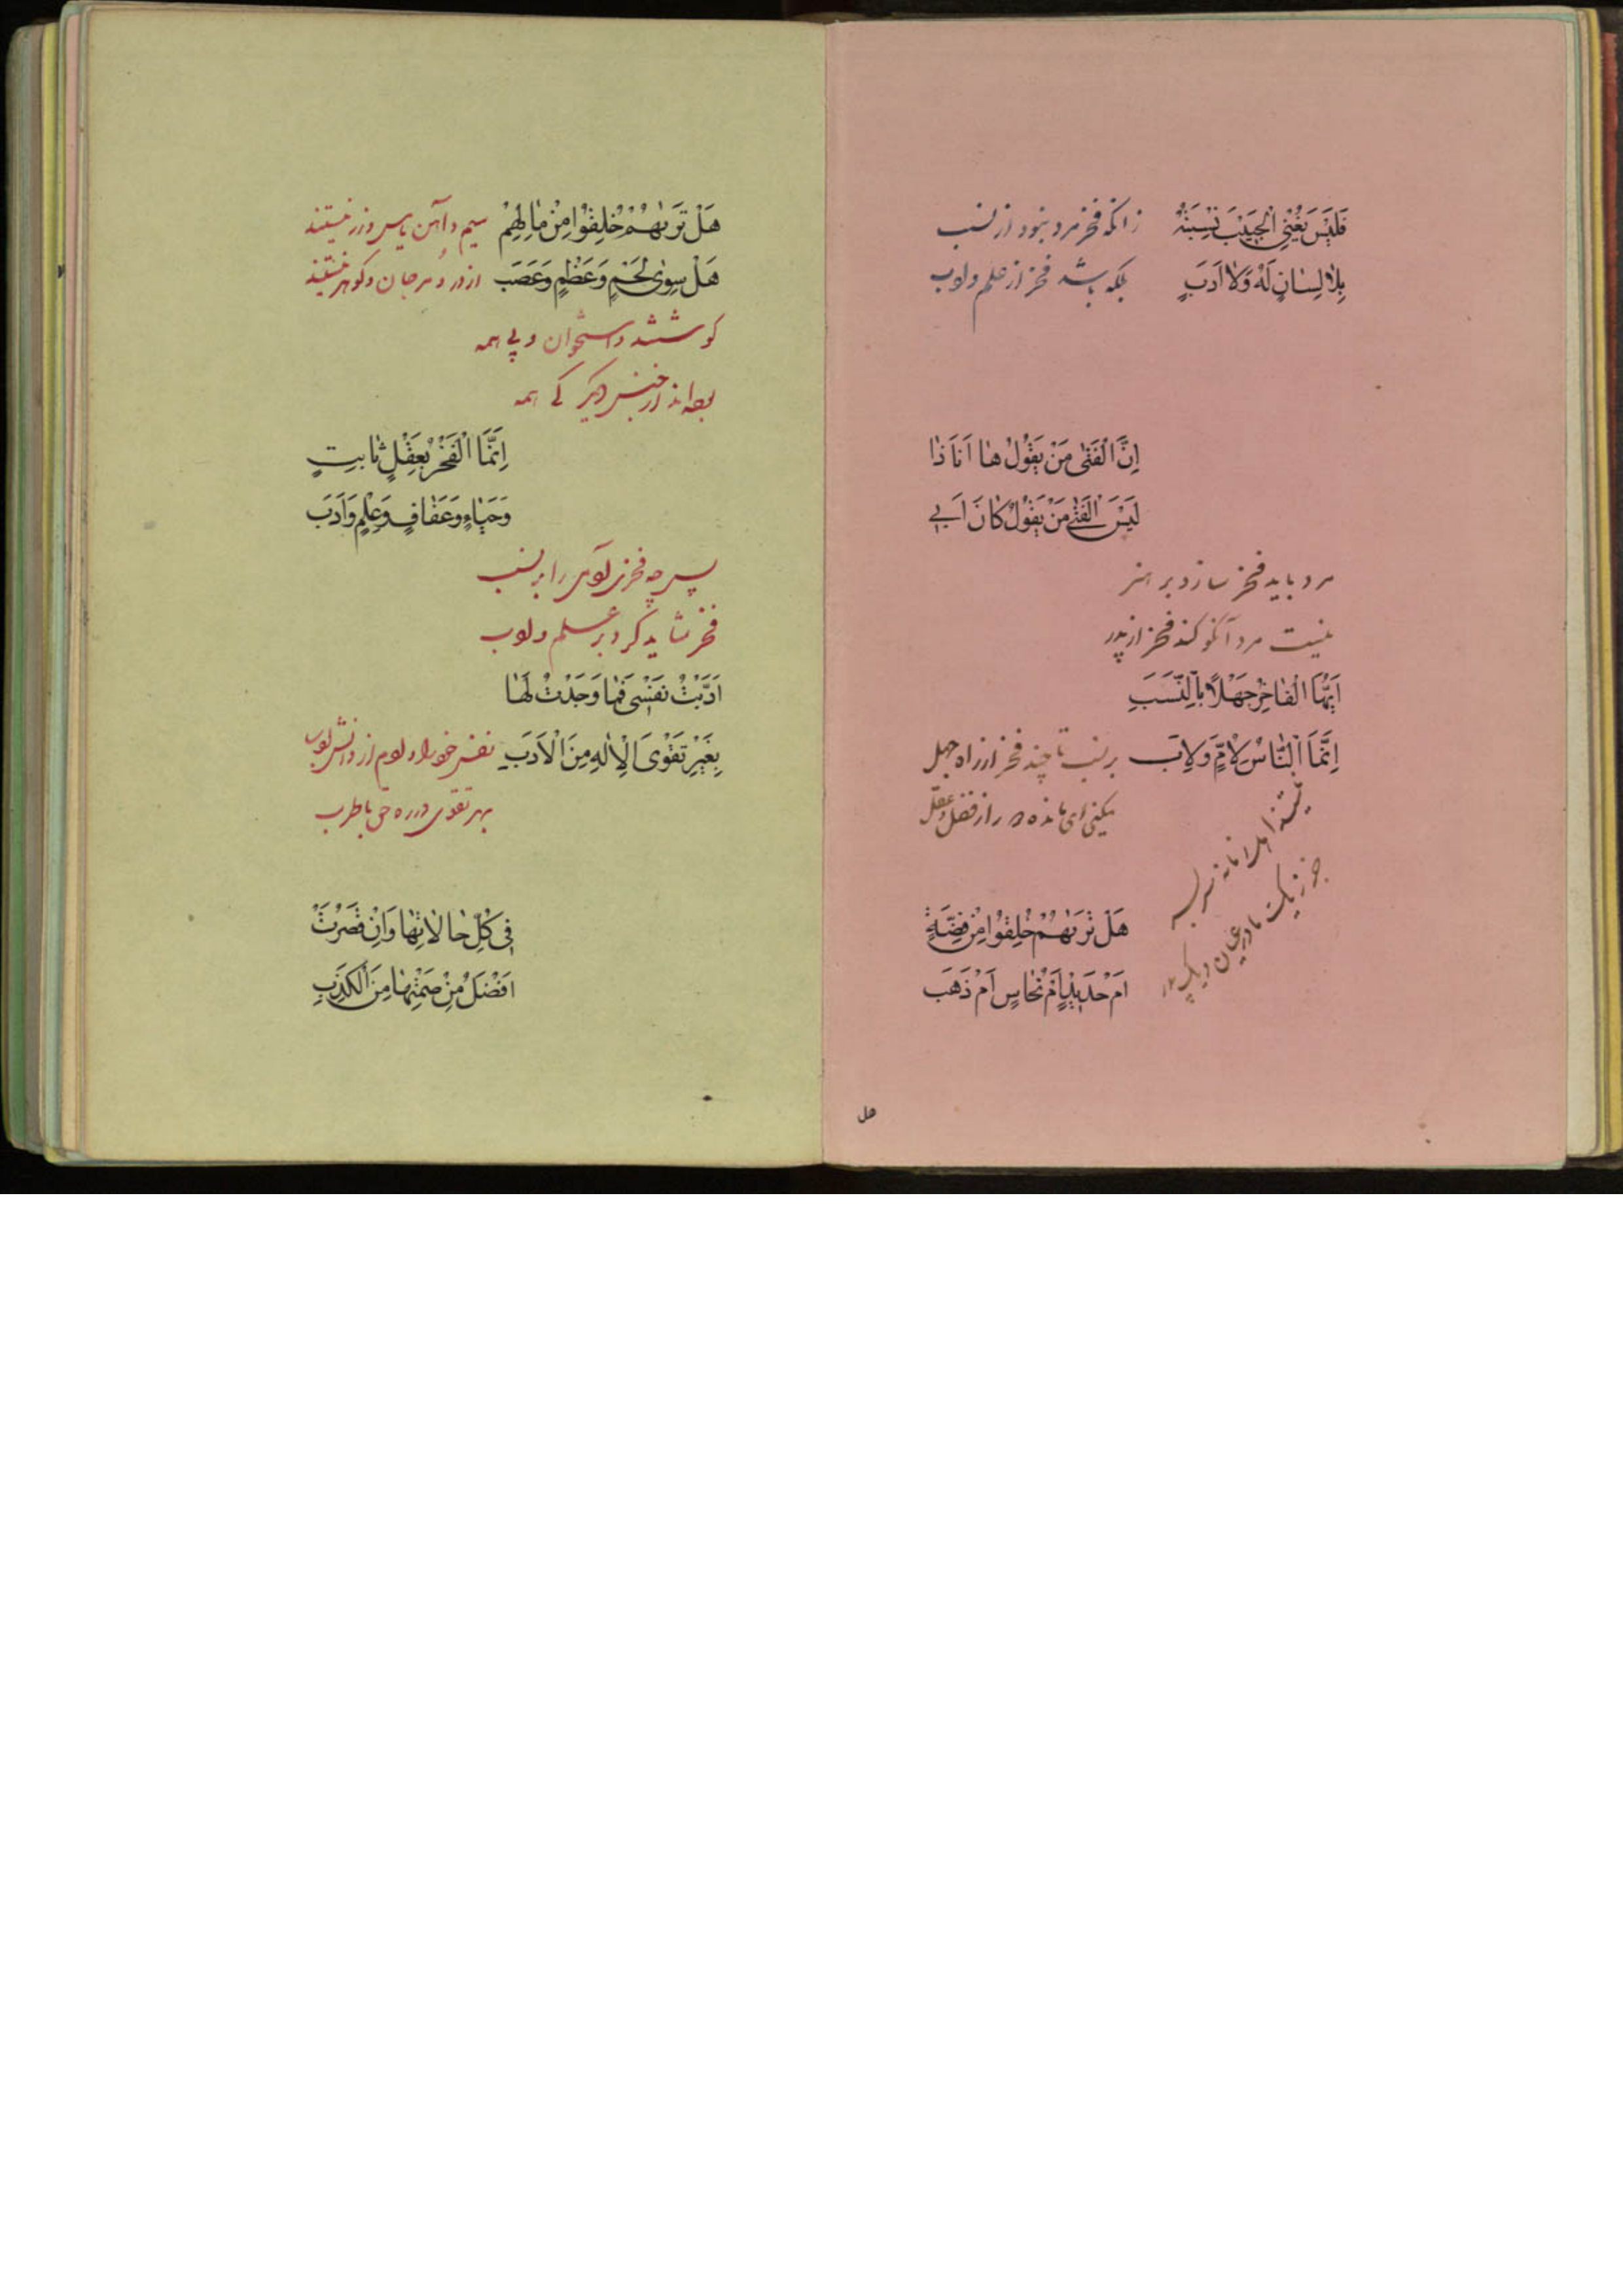 فَلَيْسَ يُغْنِي الْحَسِيبَ نِسْبَتُهُ
زانکه فخر مرد نبود از نسب
بِلَا لِسَانٍ لَهُ وَلَا اَدَبٍ
بلکه باشد فخر از علم و ادب
اِنَّ الْفَتٰى مَنْ يَقُولُ هٰا اَنَا ذٰا
لَيْسَ الْفَتٰى مَنْ يَقُولُ كٰانَ اَبِي
مرد باید فخر سازد بر هنر
نیست مرد آنکو کند فخر از پدر
اَيُّهَا الْفٰاخِرُ جَهْلًا بِالنَّسَبِ
اِنَّمَا النّٰاسُ لِاُمٍّ وَلِاَبٍ
بر نسب تا چند فخر از راه جهل
میکنی ای مانده دور از فضل و عقل
نیستند
جز ز یک مادر عیان و یک
هَلْ تَرٰىهُمْ خُلِقُوا مِنْ فِضَّةٍ
اَمْ حَدِيدٍ اَمْ نُحٰاسٍ اَمْ ذَهَبَ
هل
هَلْ تَرٰىهُمْ خُلِقُوا مِنْ مٰالِهِمْ
سیم و آهن یا مس و زر نیستند
هَلْ سِوٰى لَحْمٍ وَعَظْمٍ وَعَصَبَ
از در و مرجان و گوهر نیستند
گوشتند و استخوان و پی همه
بوده‌اند از جنس دیگر کی همه
اِنَّمَا الْفَخْرُ بِعَقْلٍ ثٰابِتٍ
وَحَيٰاءٍ وَعَفٰافٍ وَعِلْمٍ وَاَدَبَ
پس چه فخری آدمی را بر نسب
فخر شاید کرد بر علم و ادب
اَدَّبْتُ نَفْسِي فَمٰا وَجَدْتُ لَهٰا
بِغَيْرِ تَقْوَى الْاِلٰهِ مِنَ الْاَدَبِ
نفس خود را دادم از دانش ادب
بهر تقوی در ره حق با طرب
فِي كُلِّ حٰالٰاتِهٰا وَاِنْ قَصُرَتْ
اَفْضَلُ مِنْ صَمْتِهٰا مِنَ الْكَذِبِ